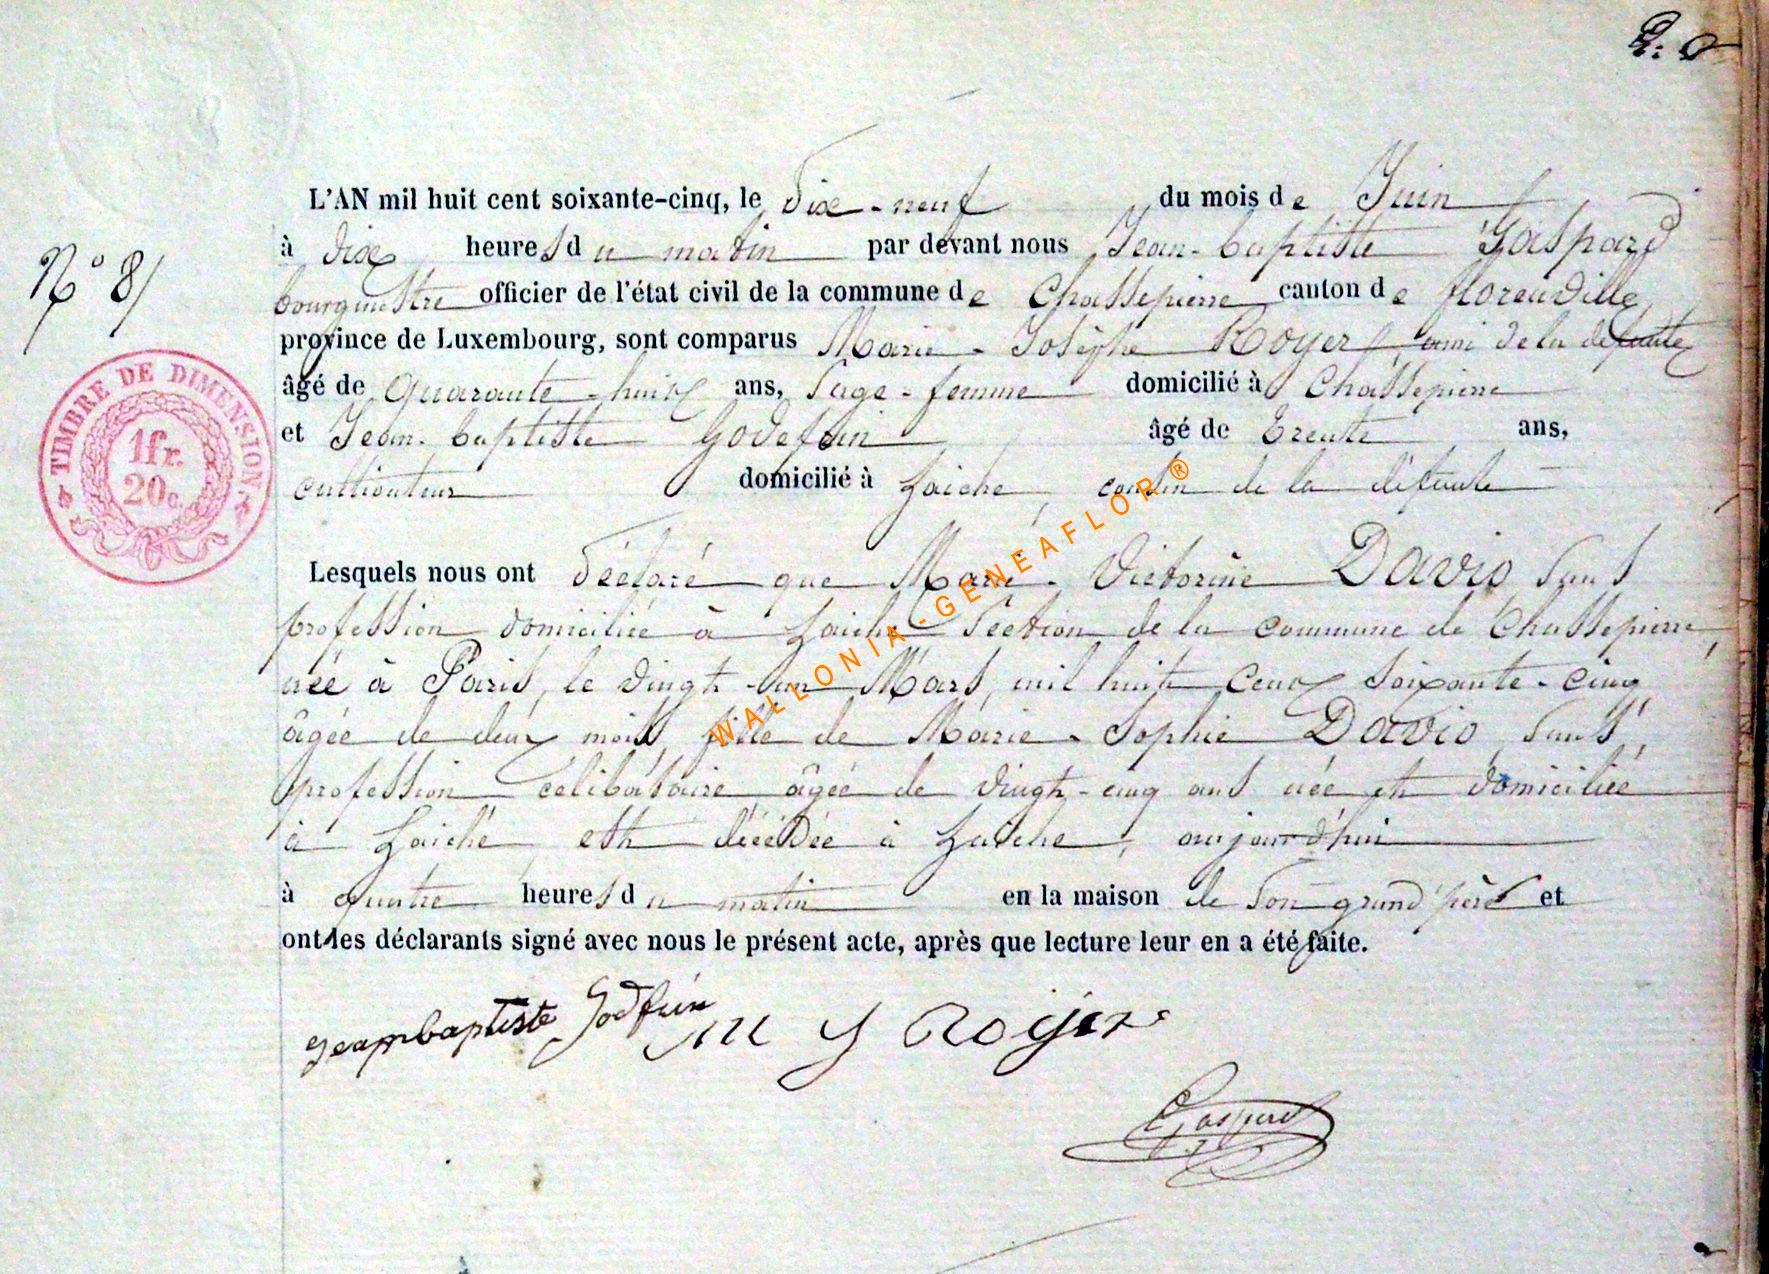 N° 8
TIMBRE DE DIMENSION
1fr.
20c.
L'AN mil huit cent soixante-cinq, le dix-neuf du mois de Juin
à dix heures du matin par devant nous Jean-baptiste Gaspard
bourgmestre officier de l'état civil de la commune de Chassepierre canton de florenville
province de Luxembourg, sont comparus Marie-Josèphe Royer, amie de la défunte
âgé de quarante-huit ans, sage-femme domicilié à Chassepierre
et Jean-baptiste Godefrin âgé de trente ans,
cultivateur domicilié à Laiche, cousin de la défunte
Lesquels nous ont déclaré que Marie-Victorine Davio, sans
profession domiciliée à Laiche section de la commune de Chassepierre,
née à Paris, le vingt-un Mars, mil huit cent soixante-cinq,
âgée de deux mois, fille de Marie-Sophie Davio, sans
profession célibataire âgée de vingt-cinq ans née et domiciliée
à Laiche, est décédée à Laiche, aujourd'hui
à quatre heures du matin en la maison de son grand père et
ont les déclarants signé avec nous le présent acte, après que lecture leur en a été faite.
jeanbaptiste Godfrin M J Roijer
Gaspard
WALLONIA-GENEAFLOR®